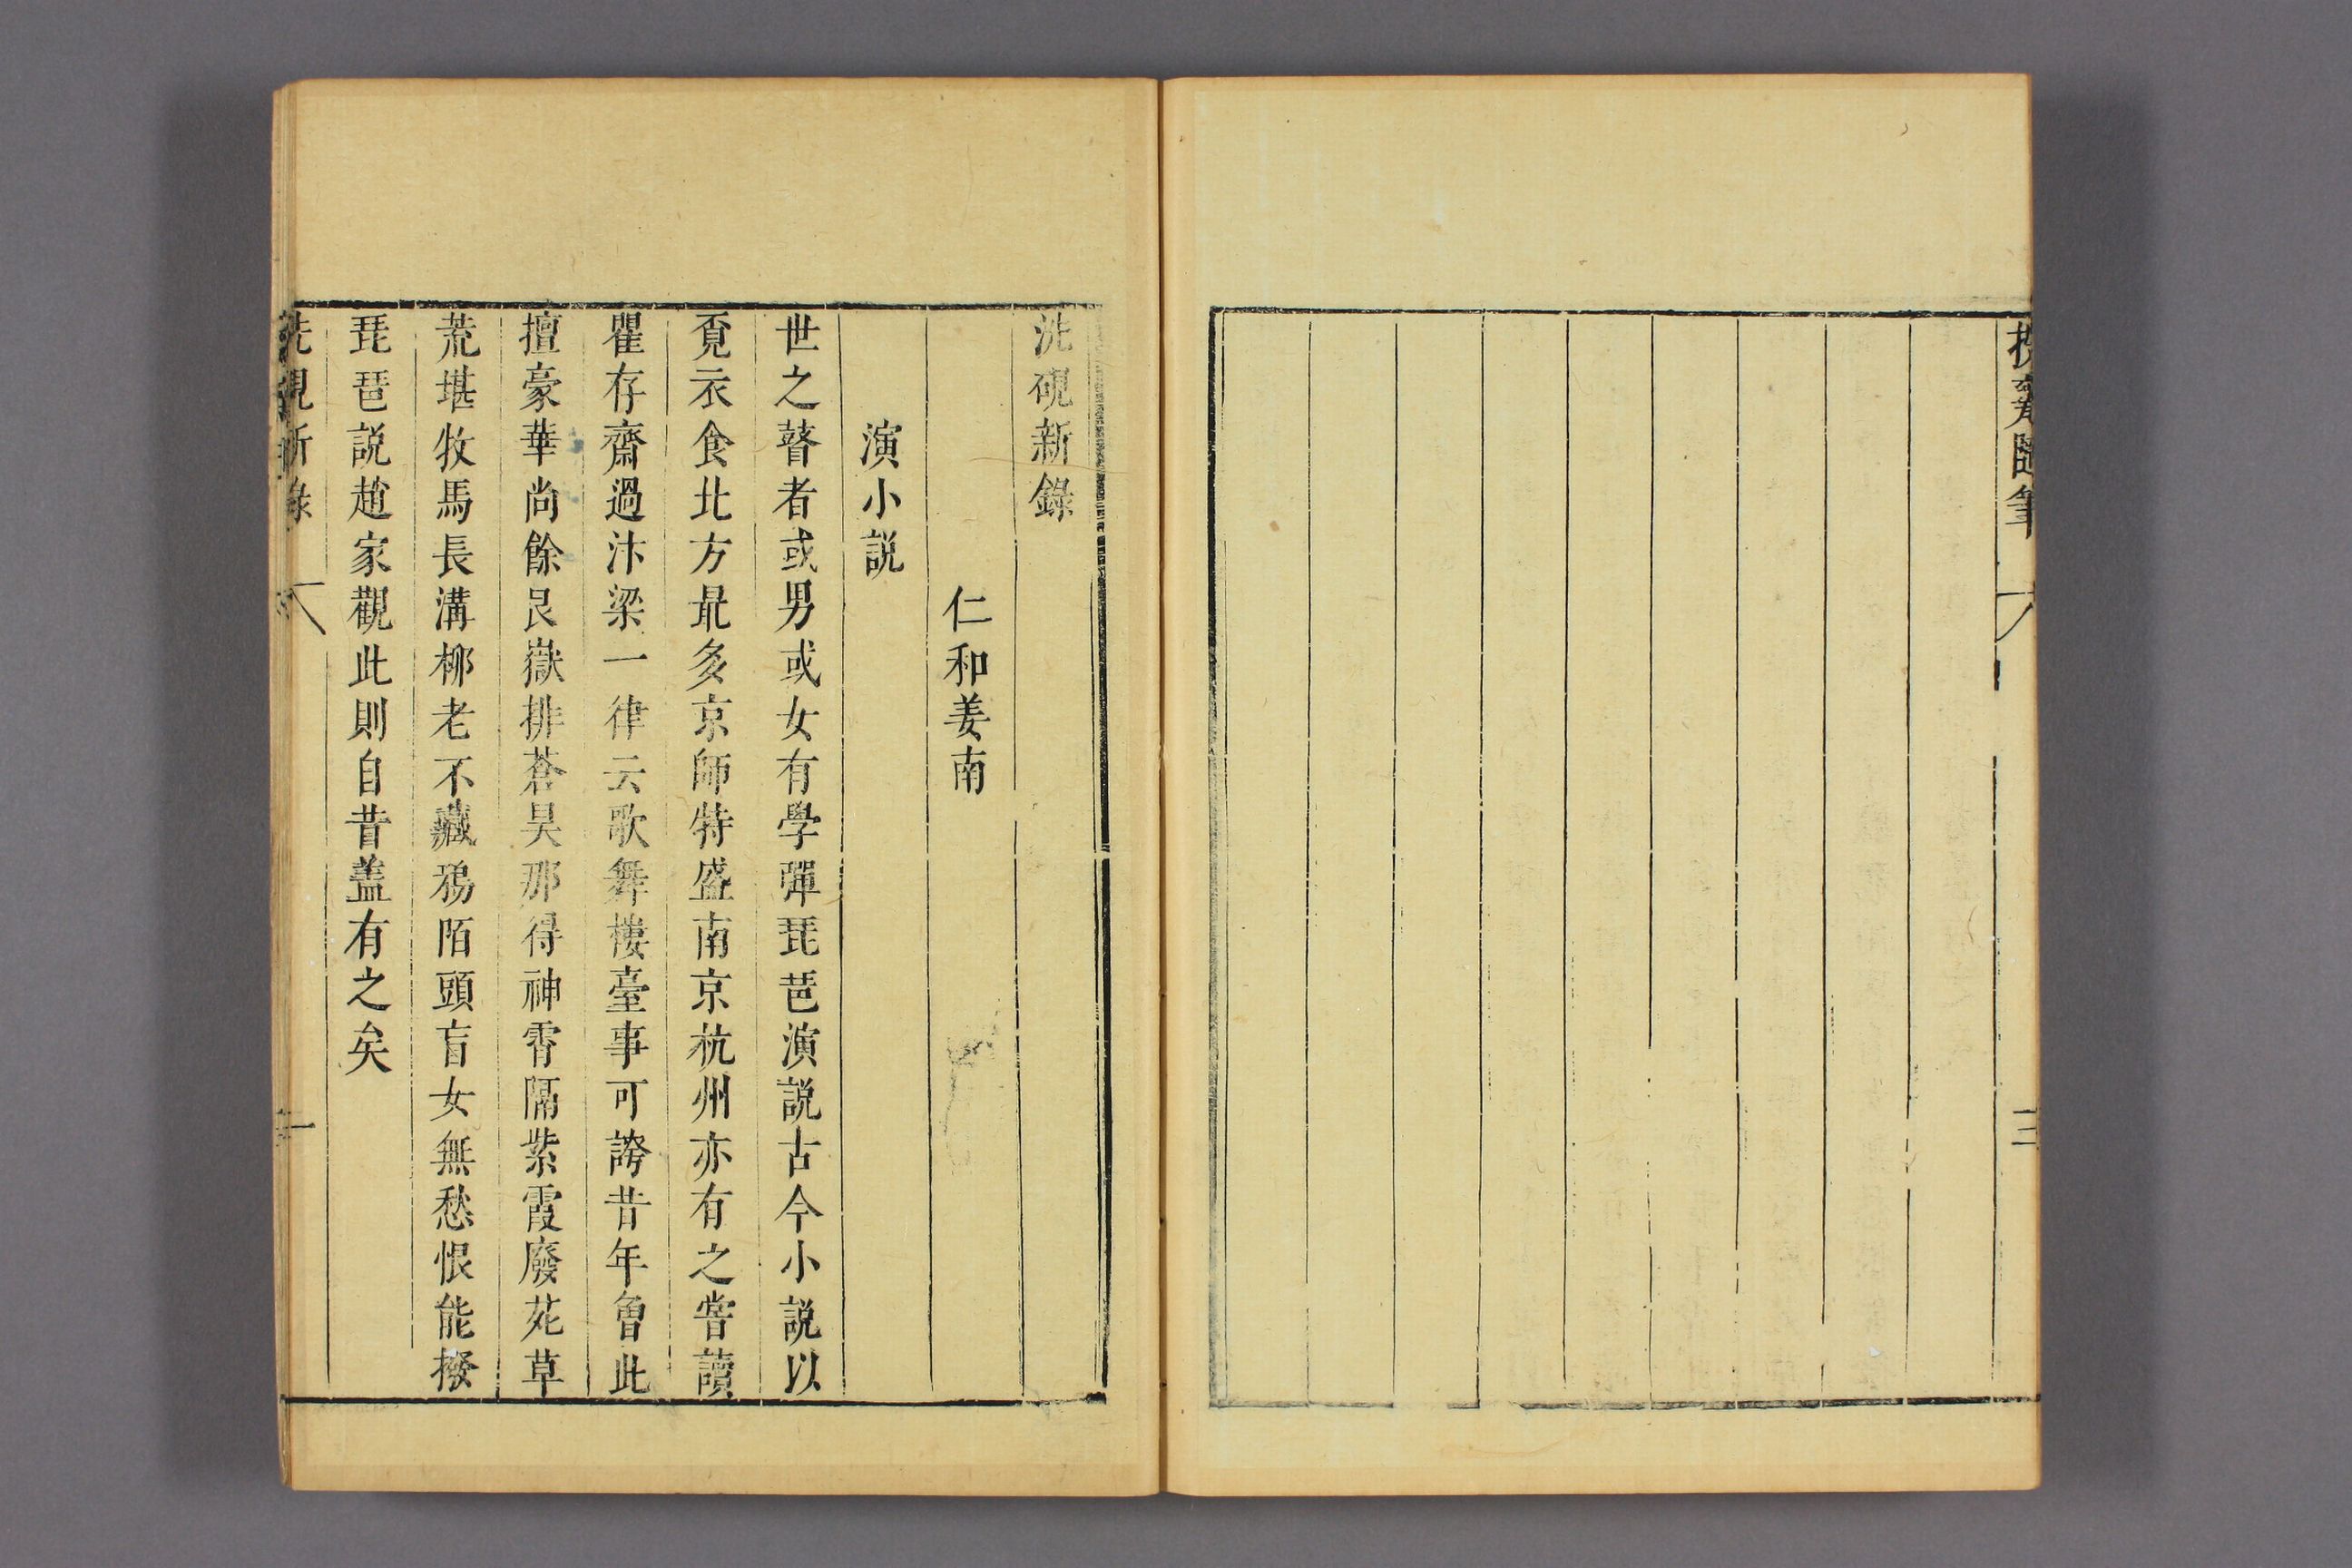 隨筆
三
洗硯新錄
仁和姜南
演小説
世之瞽者或男或女有學彈琵琶演説古今小説以
覓衣食北方最多京師特盛南京杭州亦有之嘗讀
瞿存齋過汴梁一律云歌舞樓臺事可誇昔年曾此
擅豪華尚餘艮嶽排蒼昊那得神霄隔紫霞廢苑草
荒堪牧馬長溝栁老不藏鴉陌頭盲女無愁恨能撥
琵琶説趙家觀此則自昔葢有之矣
洗硯新錄
一